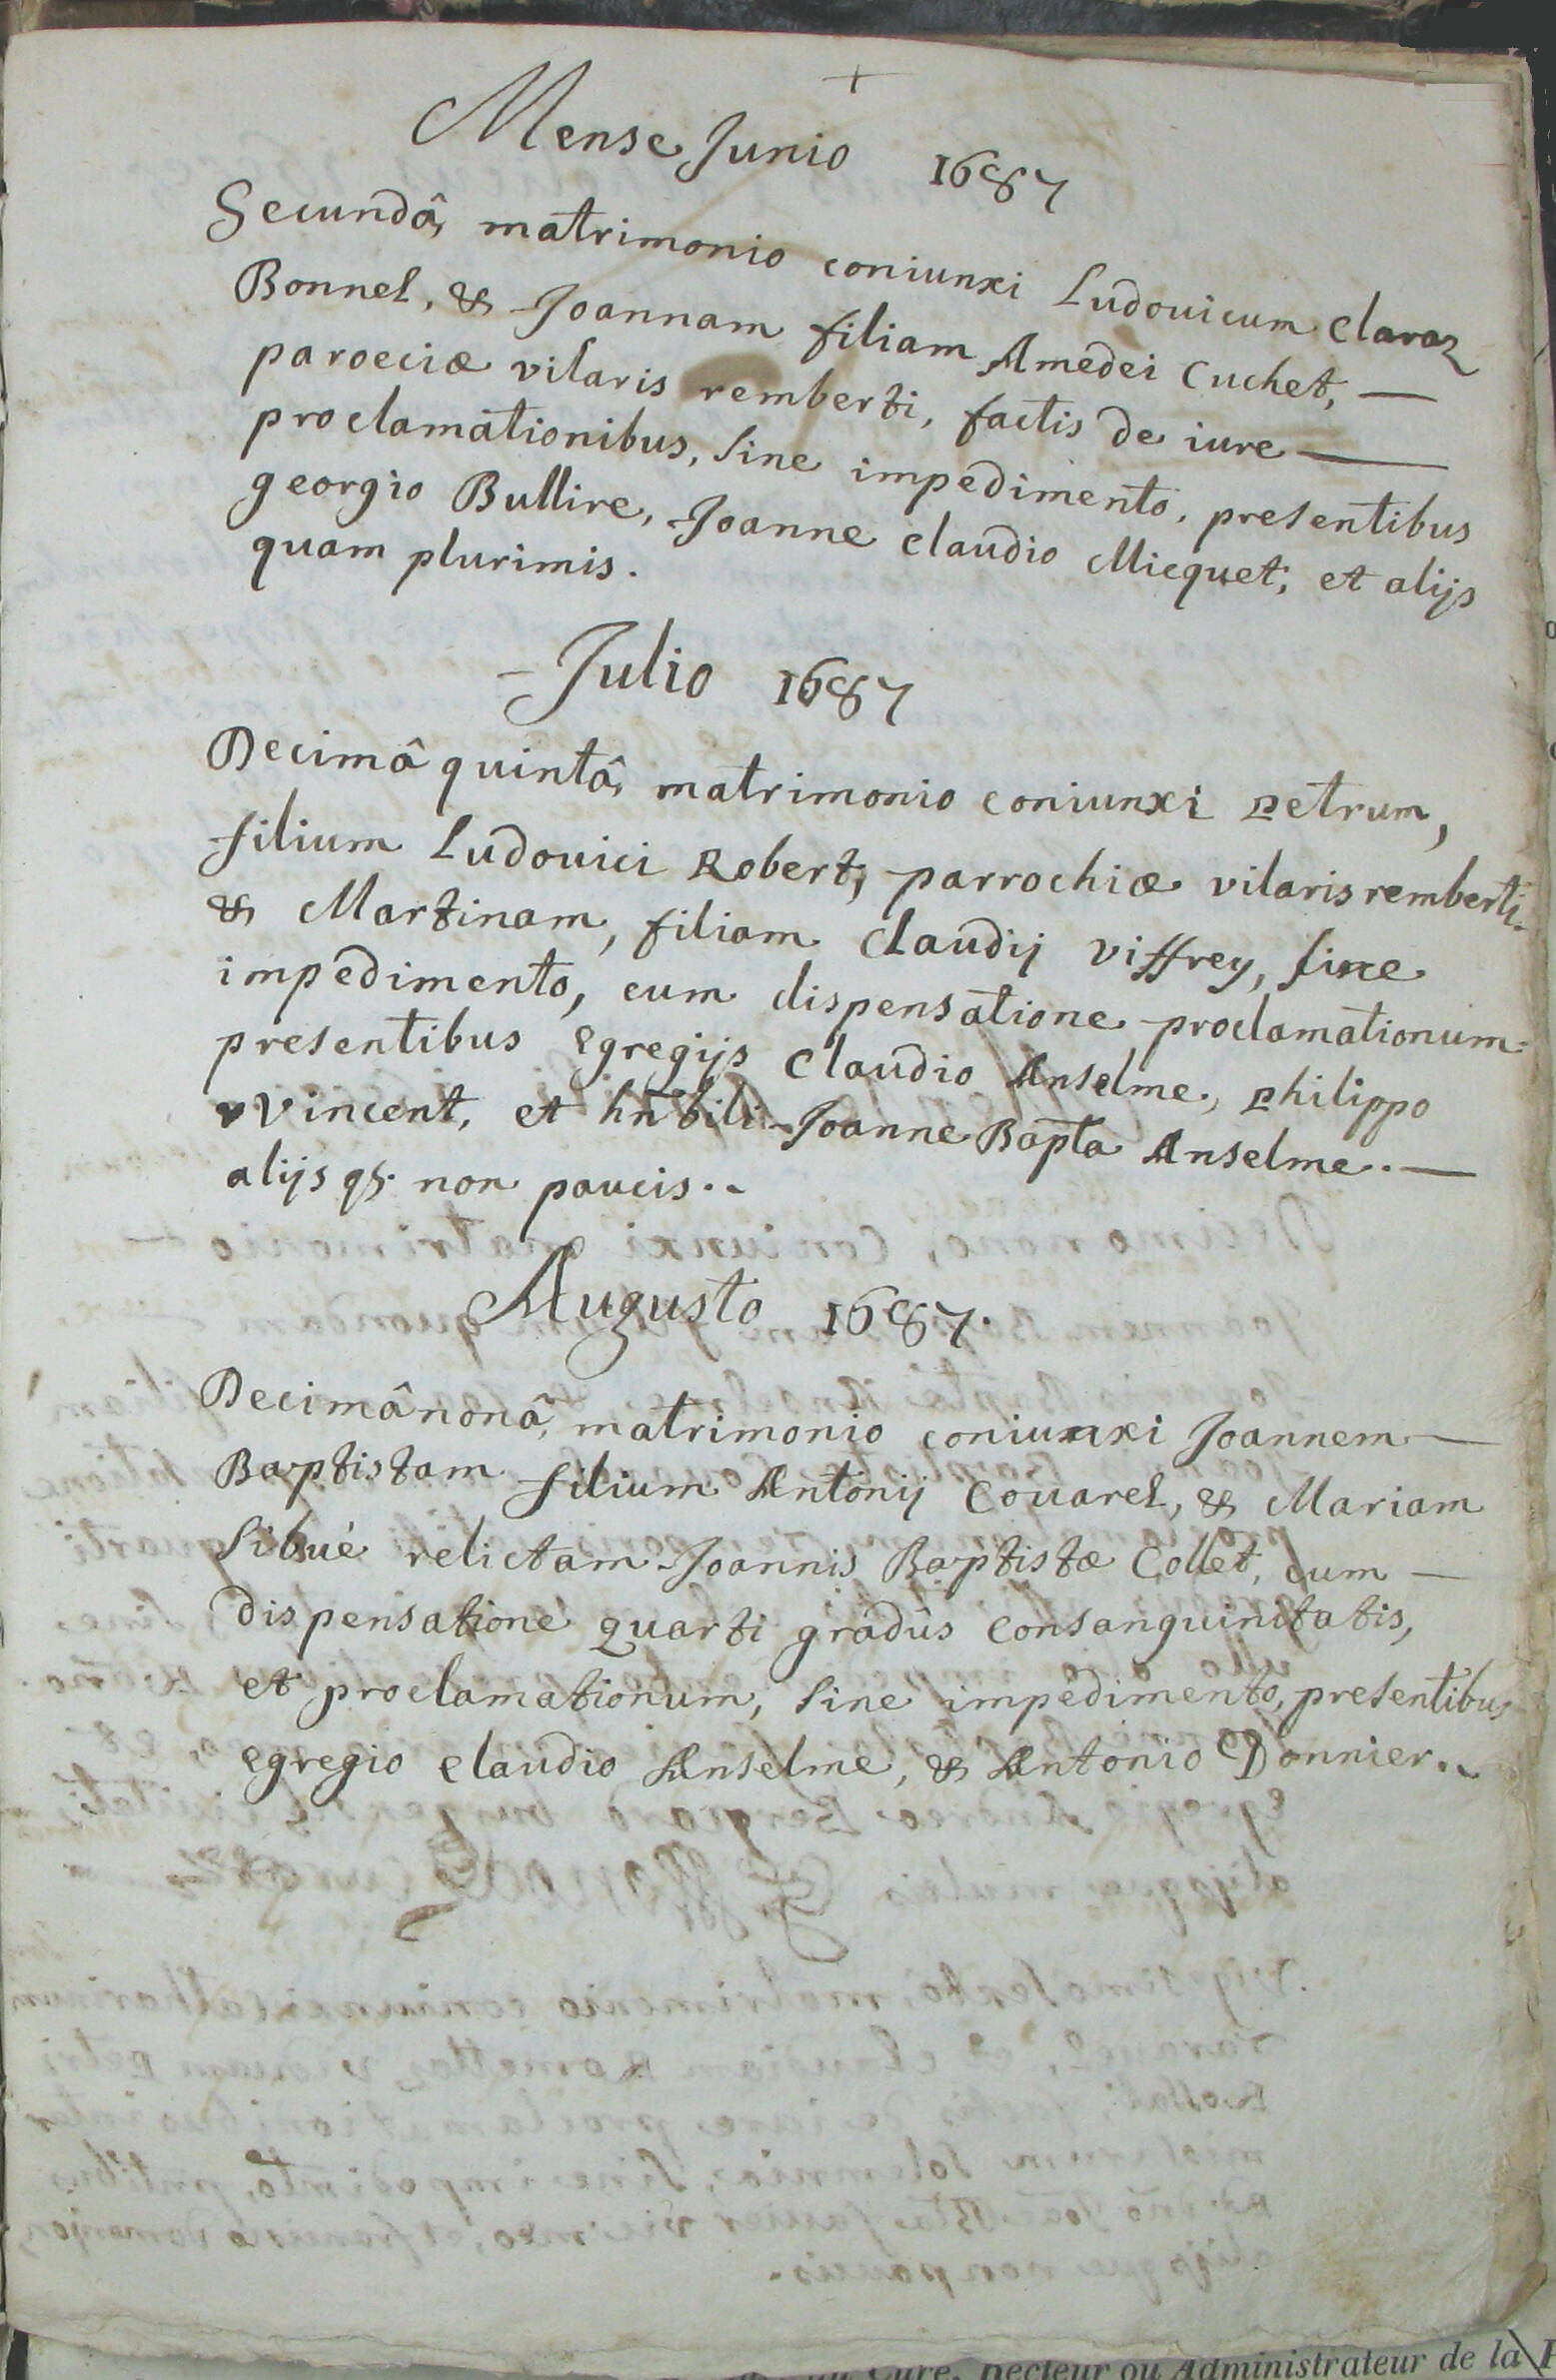 +
Mense Junio 1687
Secundâ, matrimonio coniunxi Ludouicum Claraz
Bonnel, & Joannam filiam Amedei Cuchet, —
paroeciæ vilaris remberti, factis de iure —
proclamationibus, sine impedimento, presentibus
georgio Bullire, Joanne claudio Micquet, et alijs
quam plurimis.
Julio 1687
Decimâ quintâ, matrimonio coniunxi petrum,
filium Ludouici Robert, parrochiæ vilaris remberti.
& Martinam, filiam Claudij viffrey, sine
impedimento, cum dispensatione proclamationum.
presentibus Egregijs Claudio Anselme, philippo
vincent, et hn̄bili Joanne Bapta Anselme. —
alijs qs. non paucis..
Augusto 1687.
Decimâ nonâ, matrimonio coniunxi Joannem —
Baptistam filium Antonij Couarel, & Mariam
Sibué relictam Joannis Baptistæ Collet, cum —
dispensatione quarti gradûs consanguinitatis,
et proclamationum, sine impedimento, presentibus
egregio claudio Anselme, & Antonio Donnier..
Curé, Recteur ou Administrateur de la